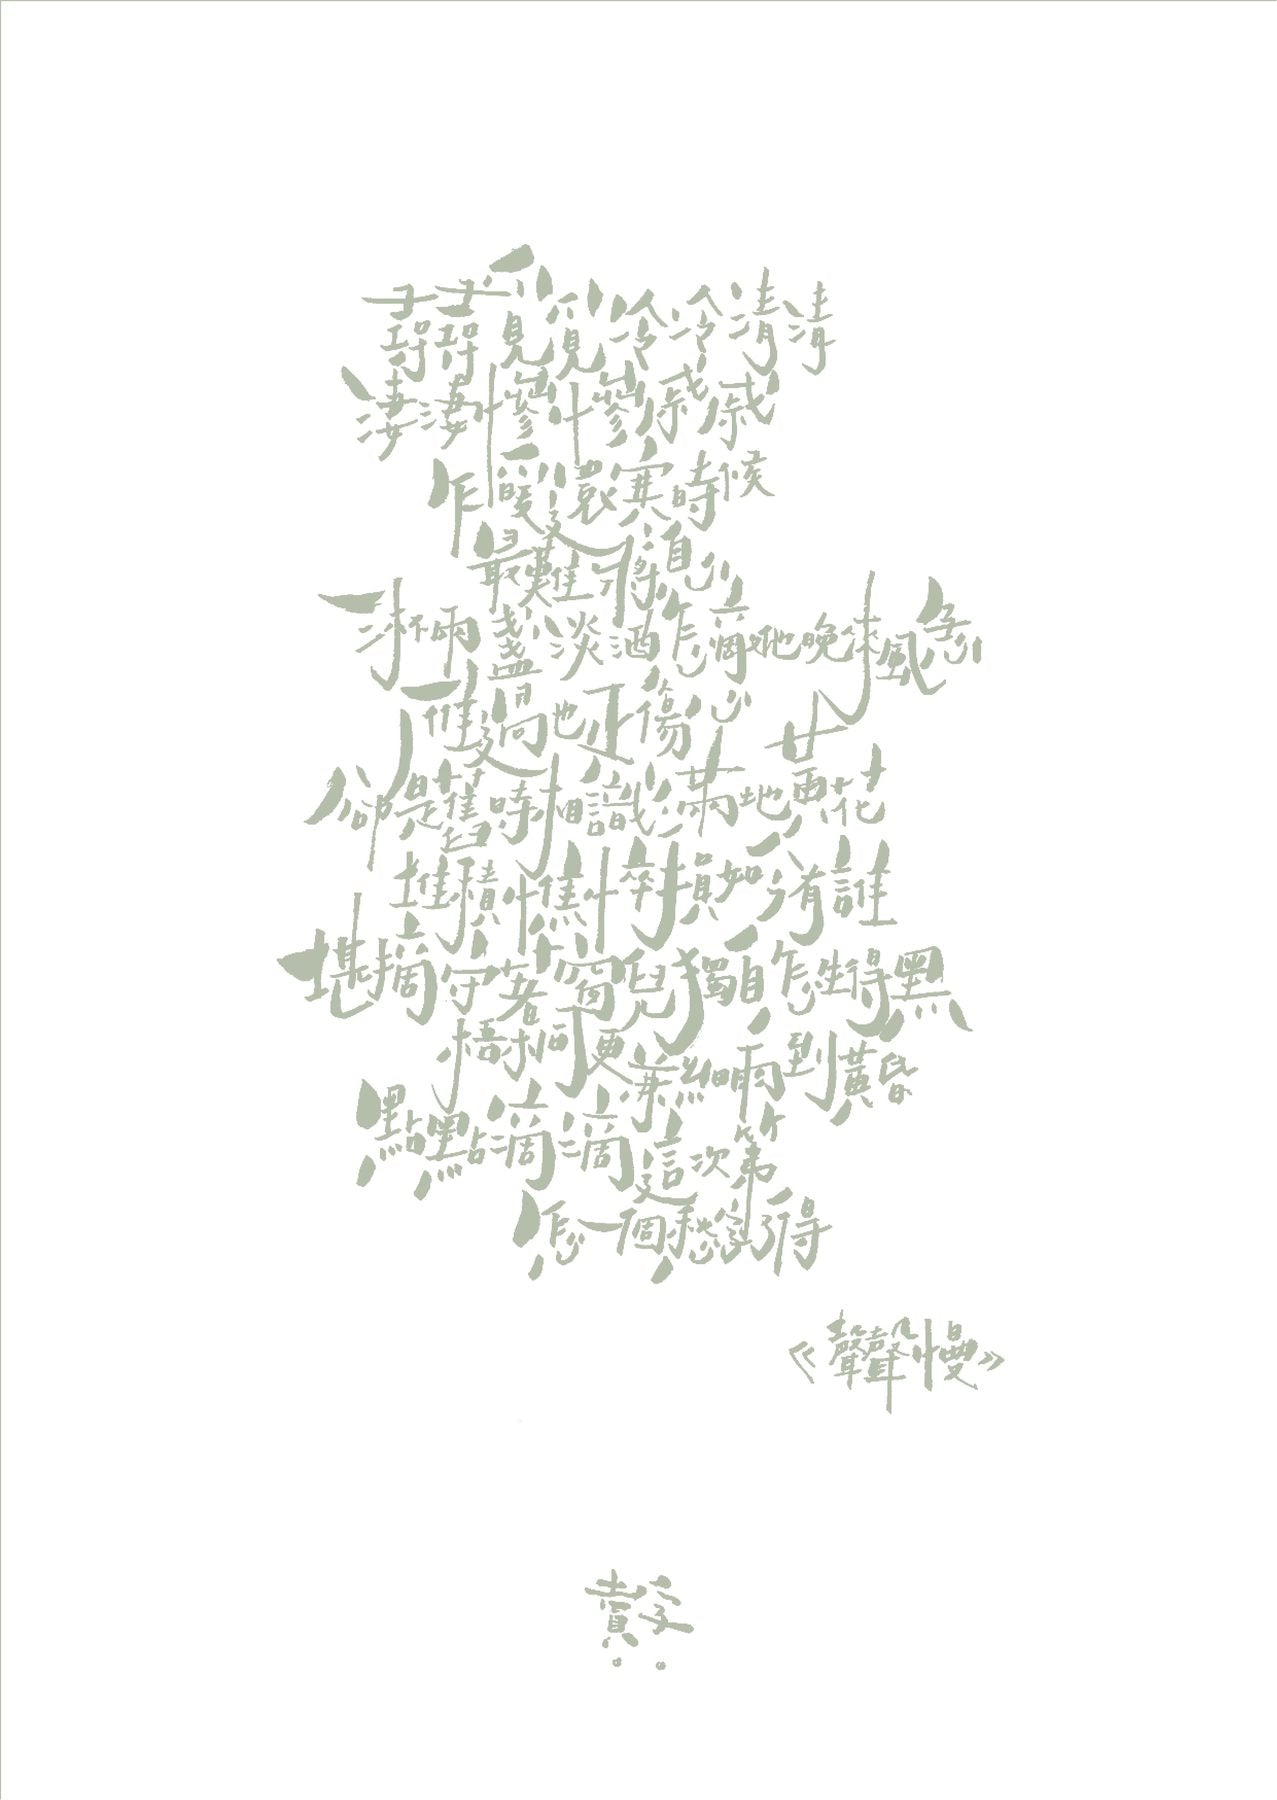 尋尋覓覓冷冷清清
淒淒慘慘戚戚
乍暖還寒時候
最難將息
三杯兩盞淡酒怎敵他晚來風急
雁過也正傷心
卻是舊時相識滿地黃花
堆積憔悴損如今有誰
堪摘守著窗兒獨自怎生得黑
梧桐更兼細雨到黃昏
點點滴滴這次第
怎一個愁字了得
《聲聲慢》